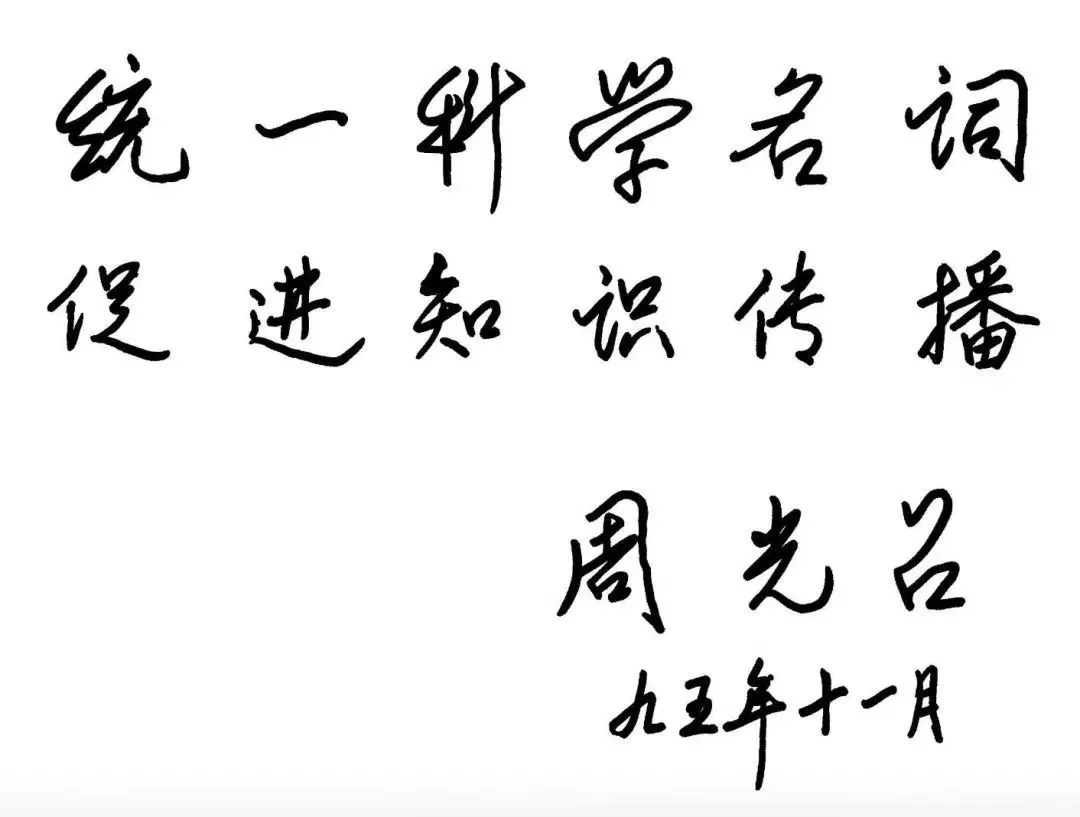 统一科学名词
促进知识传播
周光召
九五年十一月